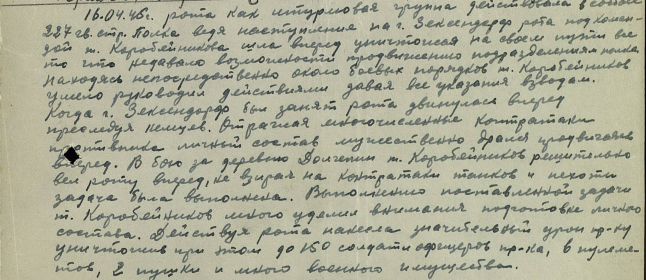 16.04.45г. рота как штурмовая группа действовала в составе
227 гв. стр. Полка ведя наступления на г. Зексендорф рота под коман-
дой т. Коробейникова шла вперед уничтожая на своем пути все
то что недавало возможности продвижению подразделениям полка
находясь непосредственно около боевых порядков т. Коробейников
умело руководил действиями давая все указания взводам.
Когда г. Зексендорф был занят рота двинулась вперед
преследуя немцев. Отражая многочисленные контратаки
противника личный состав мужественно дрался продвигаясь
вперед. В бою за деревню Долгелин т. Коробейников решительно
вел роту вперед, не взирая на контратаки танков и пехоты
задача была выполнена. Выполнению поставленной задачи
т. Коробейников много уделил внимания подготовке личного
состава. Действуя рота нанесла значительный урон пр-ку
уничтожив при этом до 150 солдат и офицеров пр-ка, 6 пулеме-
тов, 2 пушки и много военного имущества.